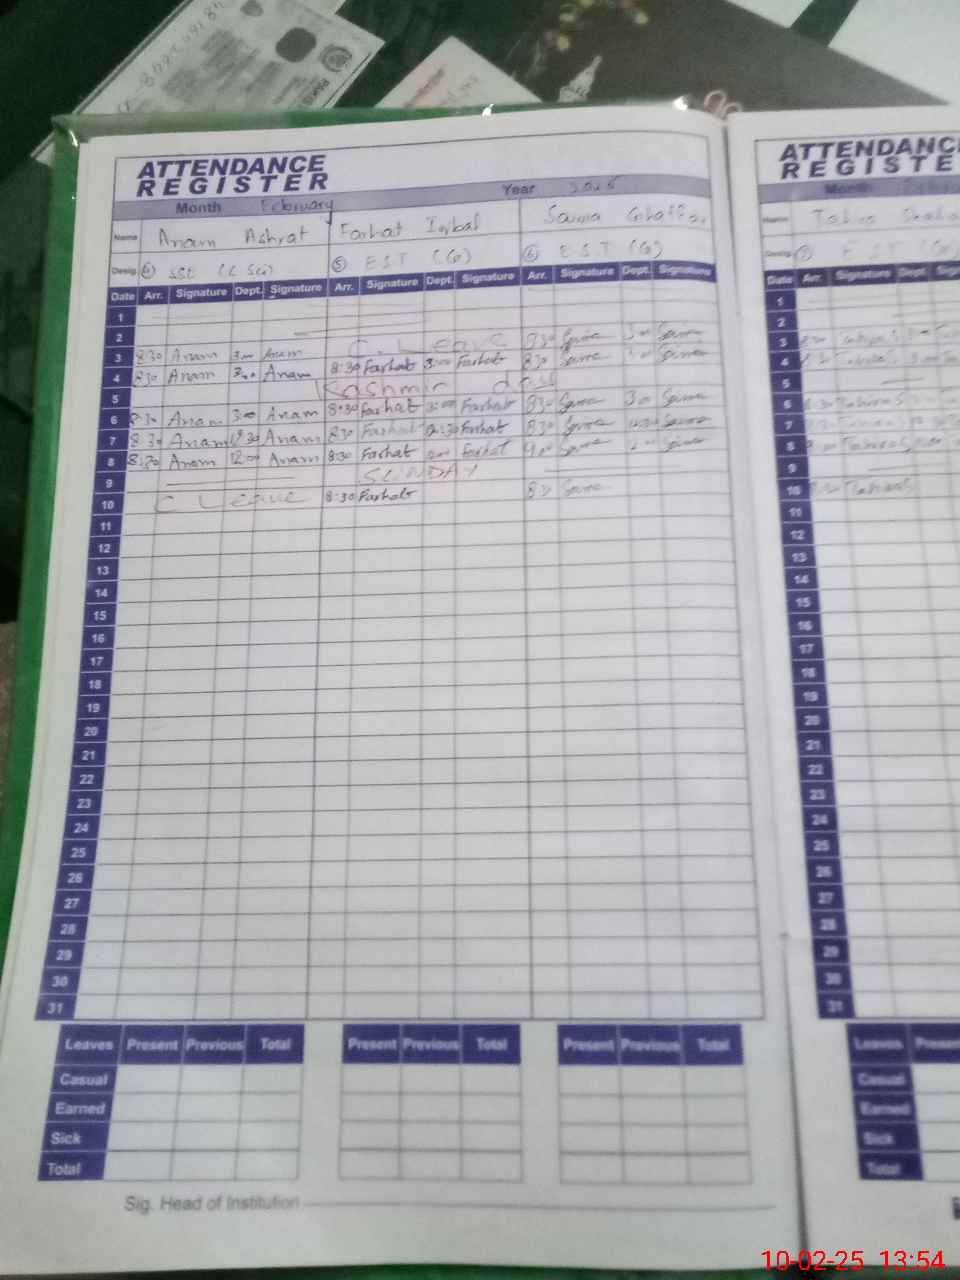 ATTENDANCE ATTENDANC
REGISTER REGISTE
Month February Year 2025 Month
Name Anam Ashraf Farhat Iqbal Saima Ghaffar Name Tahira
Desig. ④ SSE (C.Sci) ⑤ E.S.T (G) ⑥ E.S.T (G) Desig. ⑦ E.S.T (G)
Date Arr. Signature Dept. Signature Arr. Signature Dept. Signature Arr. Signature Dept. Signature Date Arr. Signature Dept.
1 1
2 2
3 8:30 Anam 3:00 Anam C. Leave 8:30 Saima 3:00 Saima 3
4 8:30 Anam 3:00 Anam 8:30 Farhat 3:00 Farhat 8:30 Saima 3:00 Saima 4
5 Kashmir day 5
6 8:30 Anam 3:00 Anam 8:30 Farhat 3:00 Farhat 8:30 Saima 3:00 Saima 6
7 8:30 Anam 12:30 Anam 8:30 Farhat 12:30 Farhat 8:30 Saima 12:30 Saima 7
8 8:30 Anam 12:00 Anam 8:30 Farhat Farhat 9:00 Saima Saima 8
9 SUNDAY 9
10 C Leave 8:30 Farhat 8:30 Saima 10
11 11
12 12
13 13
14 14
15 15
16 16
17 17
18 18
19 19
20 20
21 21
22 22
23 23
24 24
25 25
26 26
27 27
28 28
29 29
30 30
31 31
Leaves Present Previous Total Present Previous Total Present Previous Total Leaves Present
Casual Casual
Earned Earned
Sick Sick
Total Total
Sig. Head of Institution
10-02-25 13:54